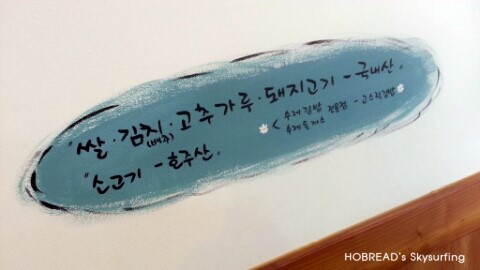 "쌀·김치·고추가루·돼지고기 - 국내산.
(배추)
< 수제김밥 전문점 - 고스락김밥
수제돈까스
"소고기 - 호주산.
HOBREAD's Skysurfing